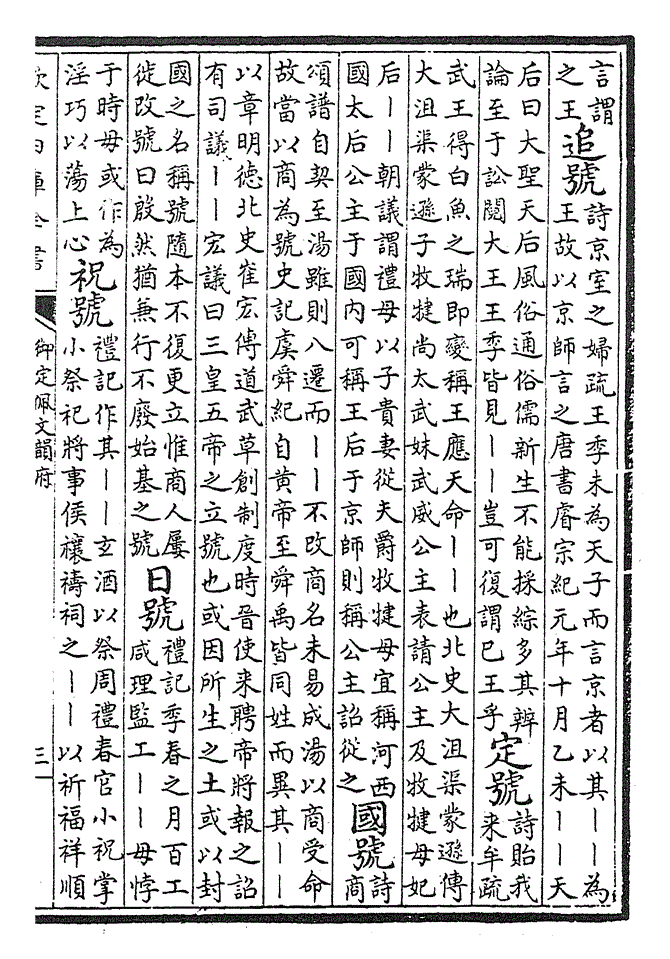 言謂
之王
追號
詩京室之婦疏王季未為天子而言京者以其｜｜為
王故以京師言之唐書睿宗紀元年十月乙未｜｜天
后曰大聖天后風俗通俗儒新生不能採綜多其辨
論至于訟閱大王王季皆見｜｜豈可復謂已王乎
定號
詩貽我
來牟疏
武王得白魚之瑞即變稱王應天命｜｜也北史大沮渠蒙遜傳
大沮渠蒙遜子牧揵尚太武妹武威公主表請公主及牧揵母妃
后｜｜朝議謂禮母以子貴妻從夫爵牧揵母宜稱河西
國太后公主于國內可稱王后于京師則稱公主詔從之
國號
詩
商
頌譜自契至湯雖則八遷而｜｜不改商名未易成湯以商受命
故當以商為號史記虞舜紀自黃帝至舜禹皆同姓而異其｜｜
以章明德北史崔宏傳道武草創制度時晉使来聘帝將報之詔
有司議｜｜宏議曰三皇五帝之立號也或因所生之土或以封
國之名稱號隨本不復更立惟商人屢
徙改號曰殷然猶兼行不廢始基之號
日號
禮記季春之月百工
咸理監工｜｜毋悖
于時毋或作為
淫巧以蕩上心
祝號
禮記作其｜｜玄酒以祭周禮春官小祝掌
小祭祀將事侯禳禱祠之｜｜以祈福祥順
欽定四庫全書
御定佩文韻府
三